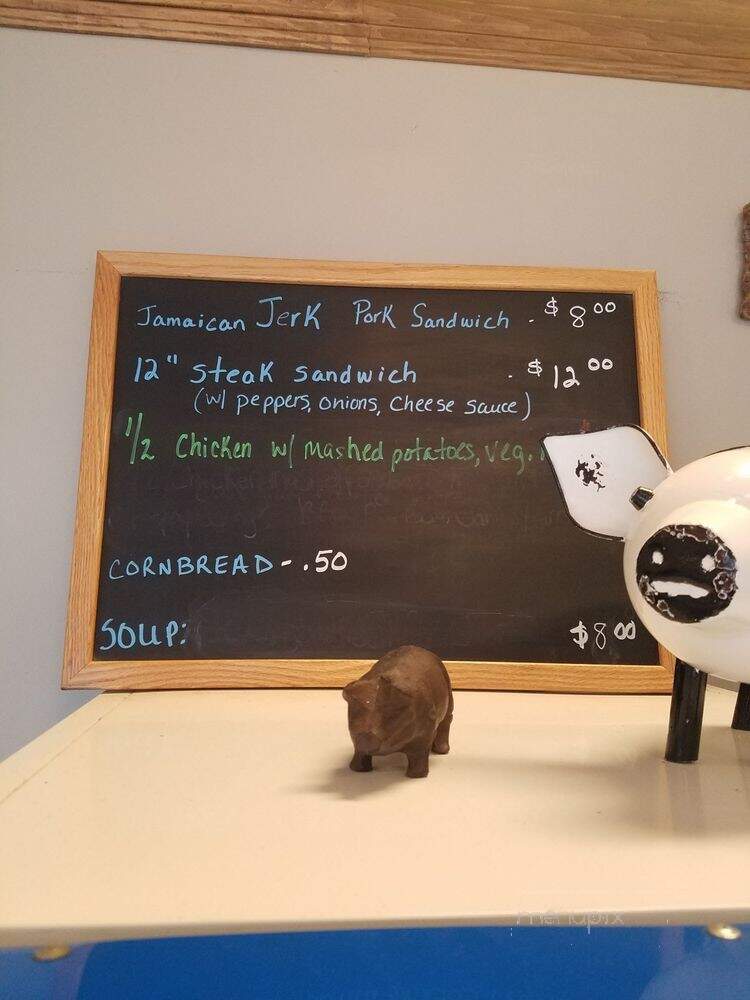 Jamaican Jerk Pork Sandwich - $8.00
12" steak sandwich - $12.00
(w/ peppers, onions, cheese sauce)
1/2 Chicken w/ mashed potatoes, veg.
CORNBREAD - .50
SOUP: $8.00
menupix